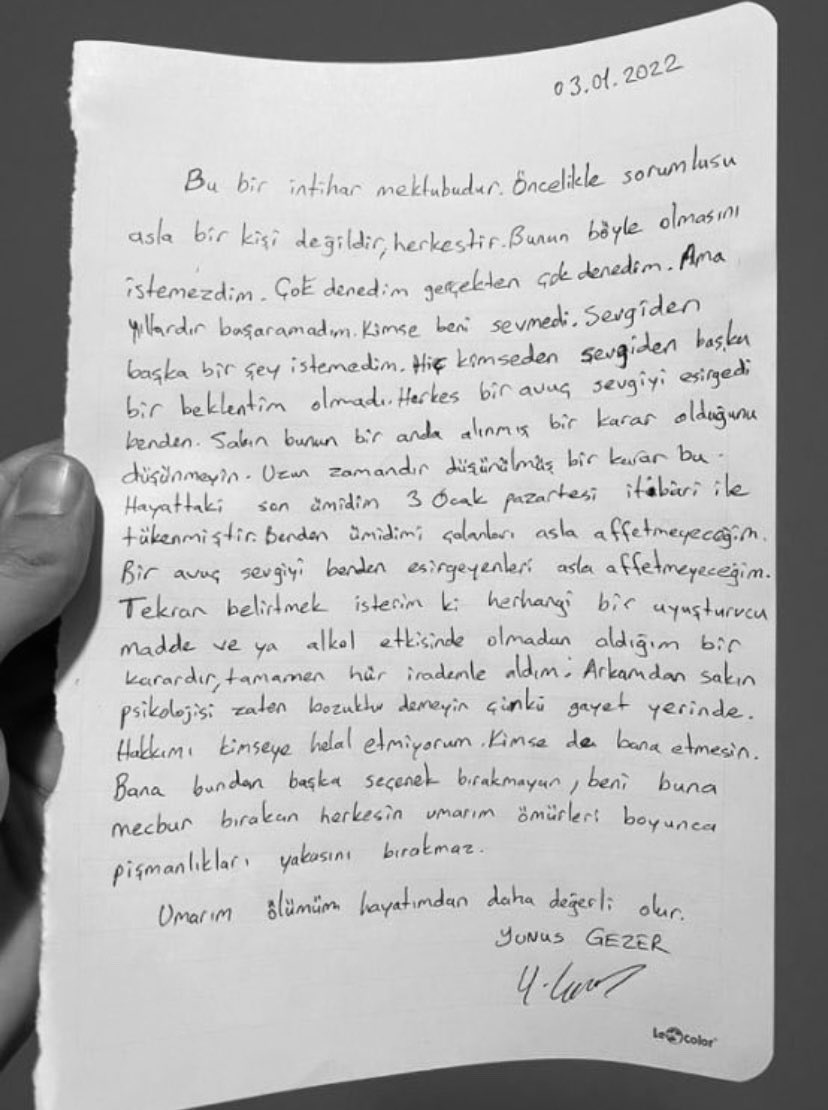 03.01.2022
Bu bir intihar mektubudur. Öncelikle sorumlusu
asla bir kişi değildir, herkestir. Bunun böyle olmasını
istemezdim. Çok denedim gerçekten çok denedim. Ama
yıllardır başaramadım. Kimse beni sevmedi. Sevgiden
başka bir şey istemedim. Hiç kimseden sevgiden başka
bir beklentim olmadı. Herkes bir avuç sevgiyi esirgedi
benden. Sakın bunun bir anda alınmış bir karar olduğunu
düşünmeyin. Uzun zamandır düşünülmüş bir karar bu.
Hayattaki son ümidim 3 Ocak pazartesi itibari ile
tükenmiştir. Benden ümidimi çalanları asla affetmeyeceğim.
Bir avuç sevgiyi benden esirgeyenleri asla affetmeyeceğim.
Tekrar belirtmek isterim ki herhangi bir uyuşturucu
madde ve ya alkol etkisinde olmadan aldığım bir
karardır, tamamen hür irademle aldım. Arkamdan sakın
psikolojisi zaten bozuktu demeyin çünkü gayet yerinde.
Hakkımı kimseye helal etmiyorum. Kimse de bana etmesin.
Bana bundan başka seçenek bırakmayan, beni buna
mecbur bırakan herkesin umarım ömürleri boyunca
pişmanlıkları yakasını bırakmaz.
Umarım ölümüm hayatımdan daha değerli olur.
YUNUS GEZER
Le color